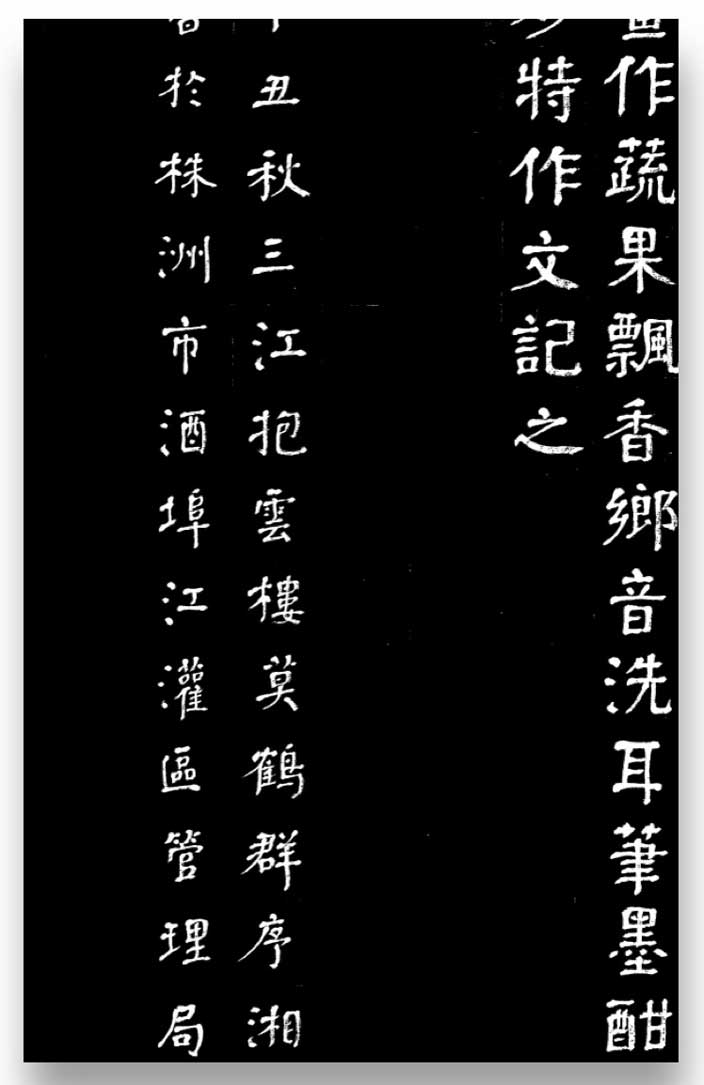 作蔬果飄香鄉音洗耳筆墨酣
特作文記之
丑秋三江抱雲樓莫鶴群序湘
於株洲市酒埠江灌區管理局